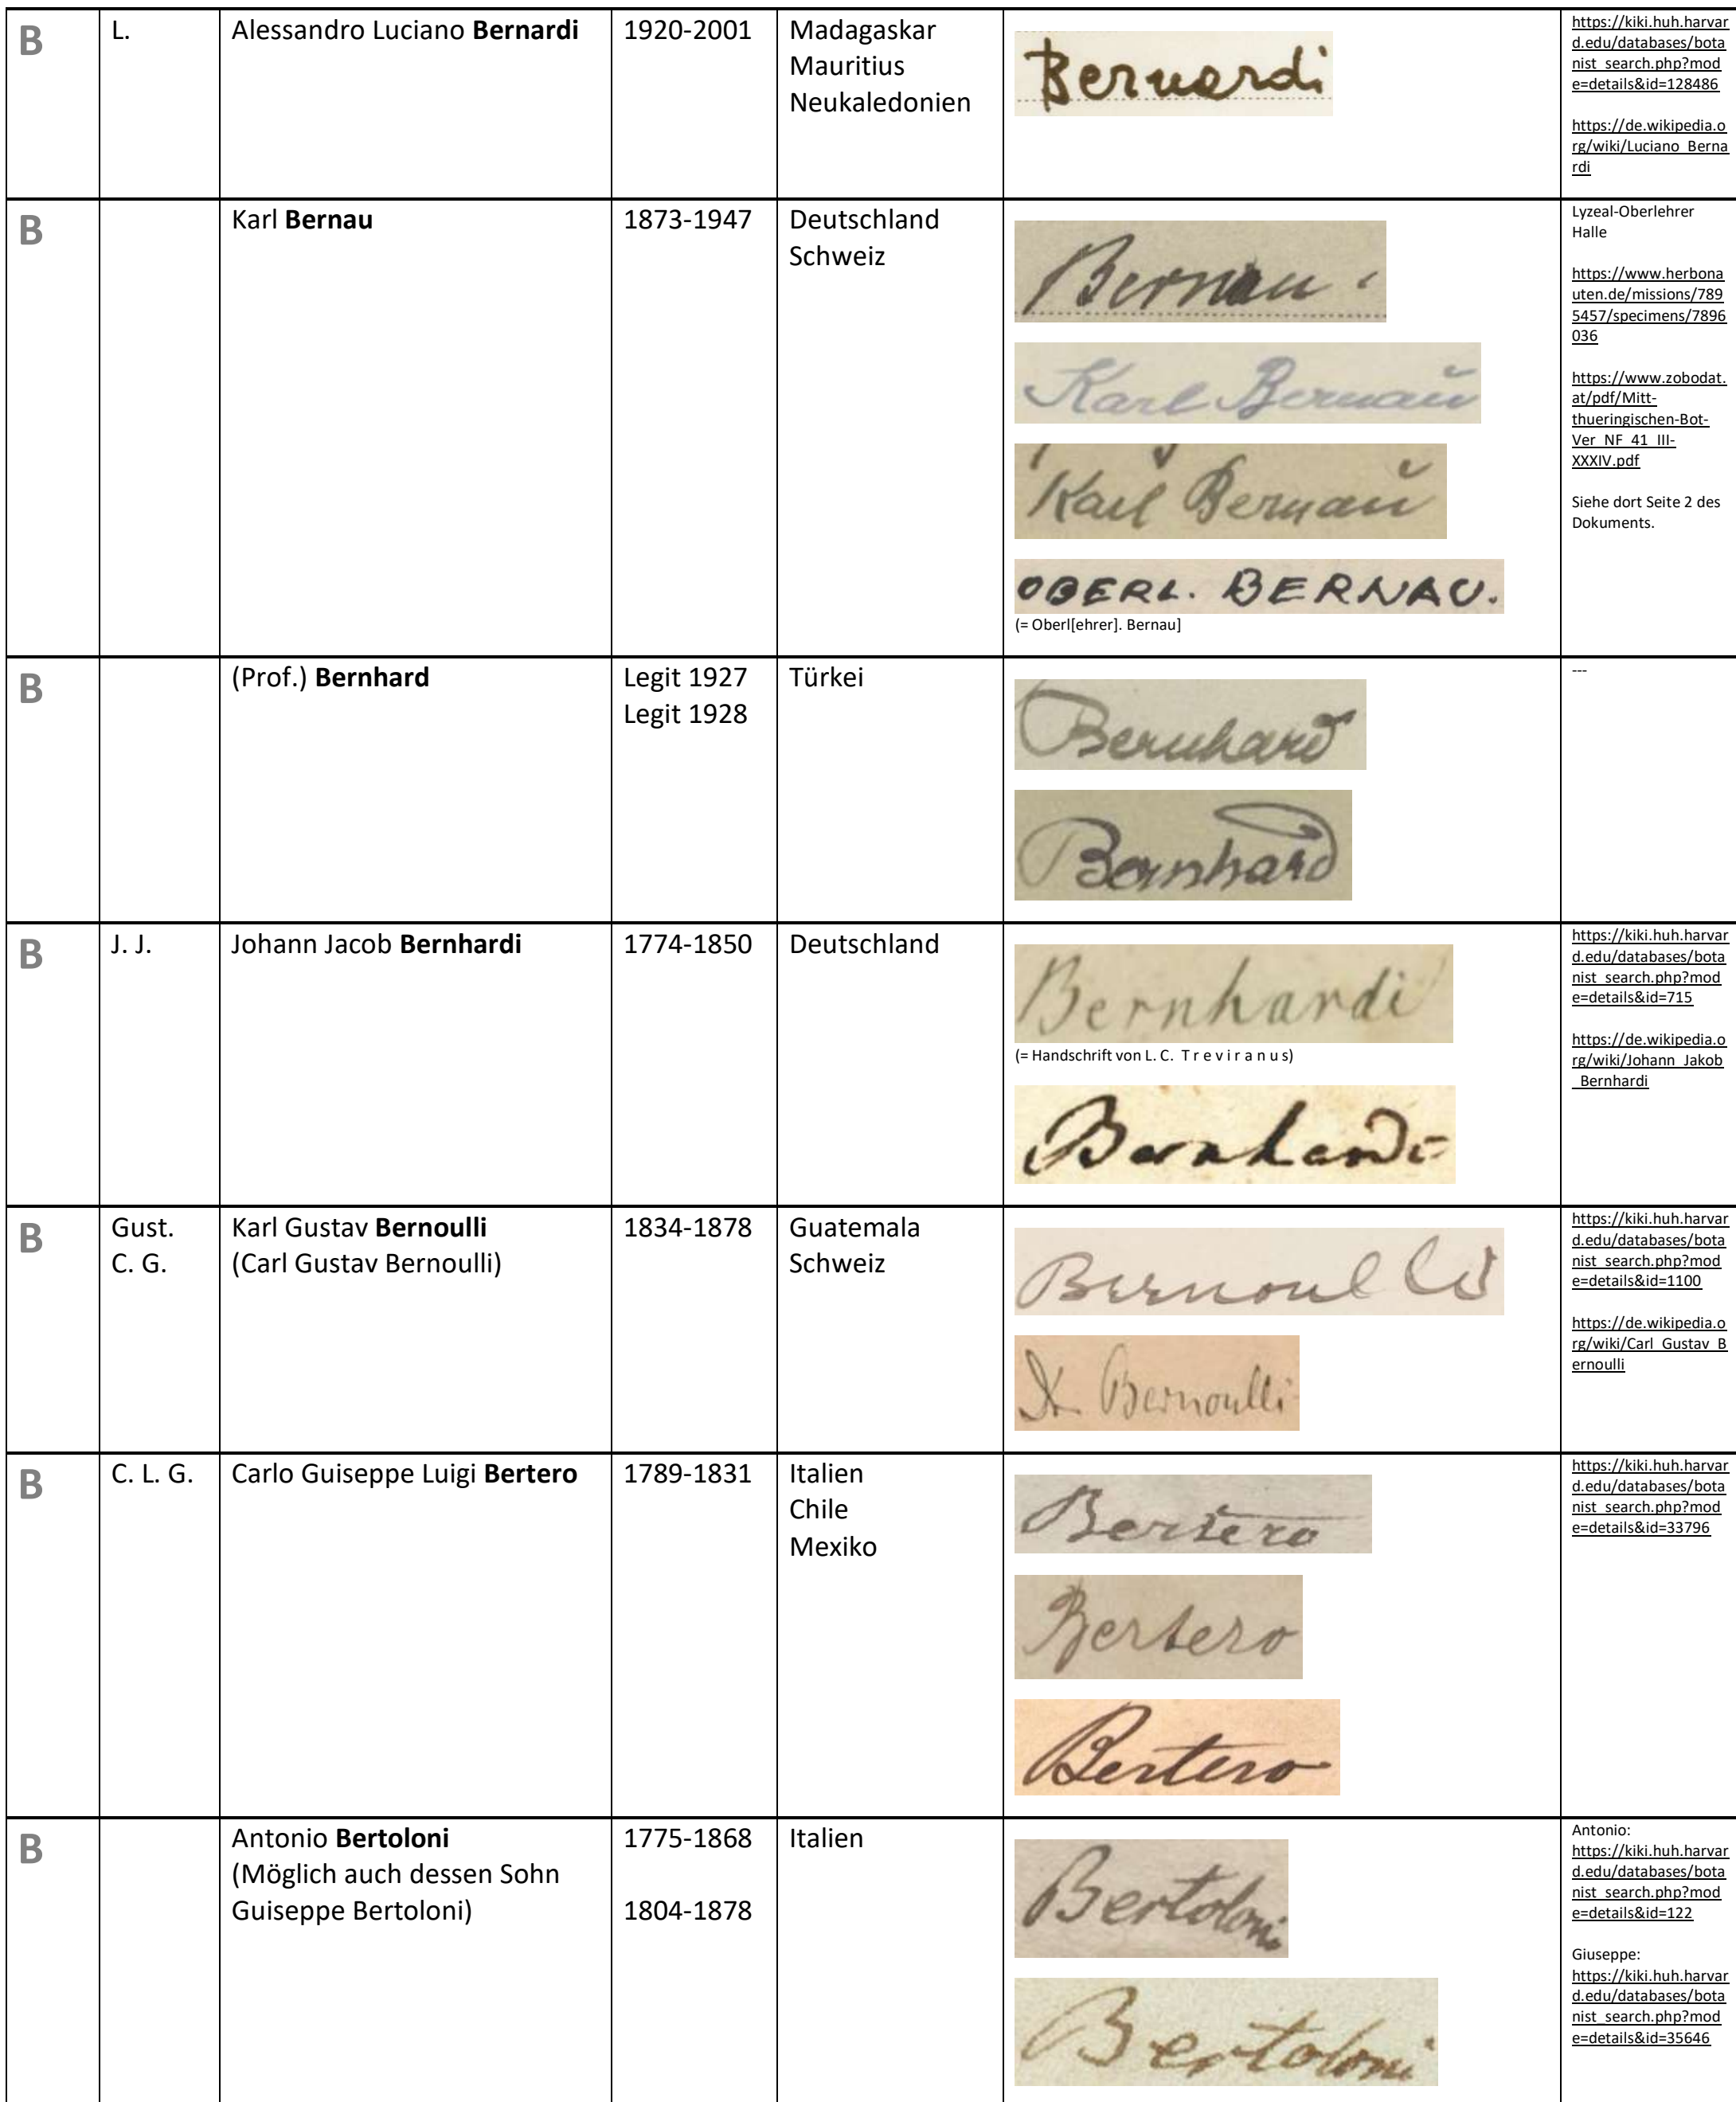 B
L.
Alessandro Luciano Bernardi
1920-2001
Madagaskar
Mauritius
Neukaledonien
Bernardi
https://kiki.huh.harvar
d.edu/databases/bota
nist_search.php?mod
e=details&id=128486
https://de.wikipedia.o
rg/wiki/Luciano_Berna
rdi
B
Karl Bernau
1873-1947
Deutschland
Schweiz
Bernau.
Karl Bernau
Karl Bernau
OBERL. BERNAU.
(= Oberl[ehrer]. Bernau]
Lyzeal-Oberlehrer
Halle
https://www.herbona
uten.de/missions/789
5457/specimens/7896
036
https://www.zobodat.
at/pdf/Mitt-
thueringischen-Bot-
Ver_NF_41_III-
XXXIV.pdf
Siehe dort Seite 2 des
Dokuments.
B
(Prof.) Bernhard
Legit 1927
Legit 1928
Türkei
Bernhard
Bernhard
---
B
J. J.
Johann Jacob Bernhardi
1774-1850
Deutschland
Bernhardi
(= Handschrift von L. C. T r e v i r a n u s)
Bernhardi
https://kiki.huh.harvar
d.edu/databases/bota
nist_search.php?mod
e=details&id=715
https://de.wikipedia.o
rg/wiki/Johann_Jakob
_Bernhardi
B
Gust.
C. G.
Karl Gustav Bernoulli
(Carl Gustav Bernoulli)
1834-1878
Guatemala
Schweiz
Bernoulli
Dr. Bernoulli
https://kiki.huh.harvar
d.edu/databases/bota
nist_search.php?mod
e=details&id=1100
https://de.wikipedia.o
rg/wiki/Carl_Gustav_B
ernoulli
B
C. L. G.
Carlo Guiseppe Luigi Bertero
1789-1831
Italien
Chile
Mexiko
Bertero
Bertero
Bertero
https://kiki.huh.harvar
d.edu/databases/bota
nist_search.php?mod
e=details&id=33796
B
Antonio Bertoloni
(Möglich auch dessen Sohn
Guiseppe Bertoloni)
1775-1868
1804-1878
Italien
Bertoloni
Bertoloni
Antonio:
https://kiki.huh.harvar
d.edu/databases/bota
nist_search.php?mod
e=details&id=122
Giuseppe:
https://kiki.huh.harvar
d.edu/databases/bota
nist_search.php?mod
e=details&id=35646